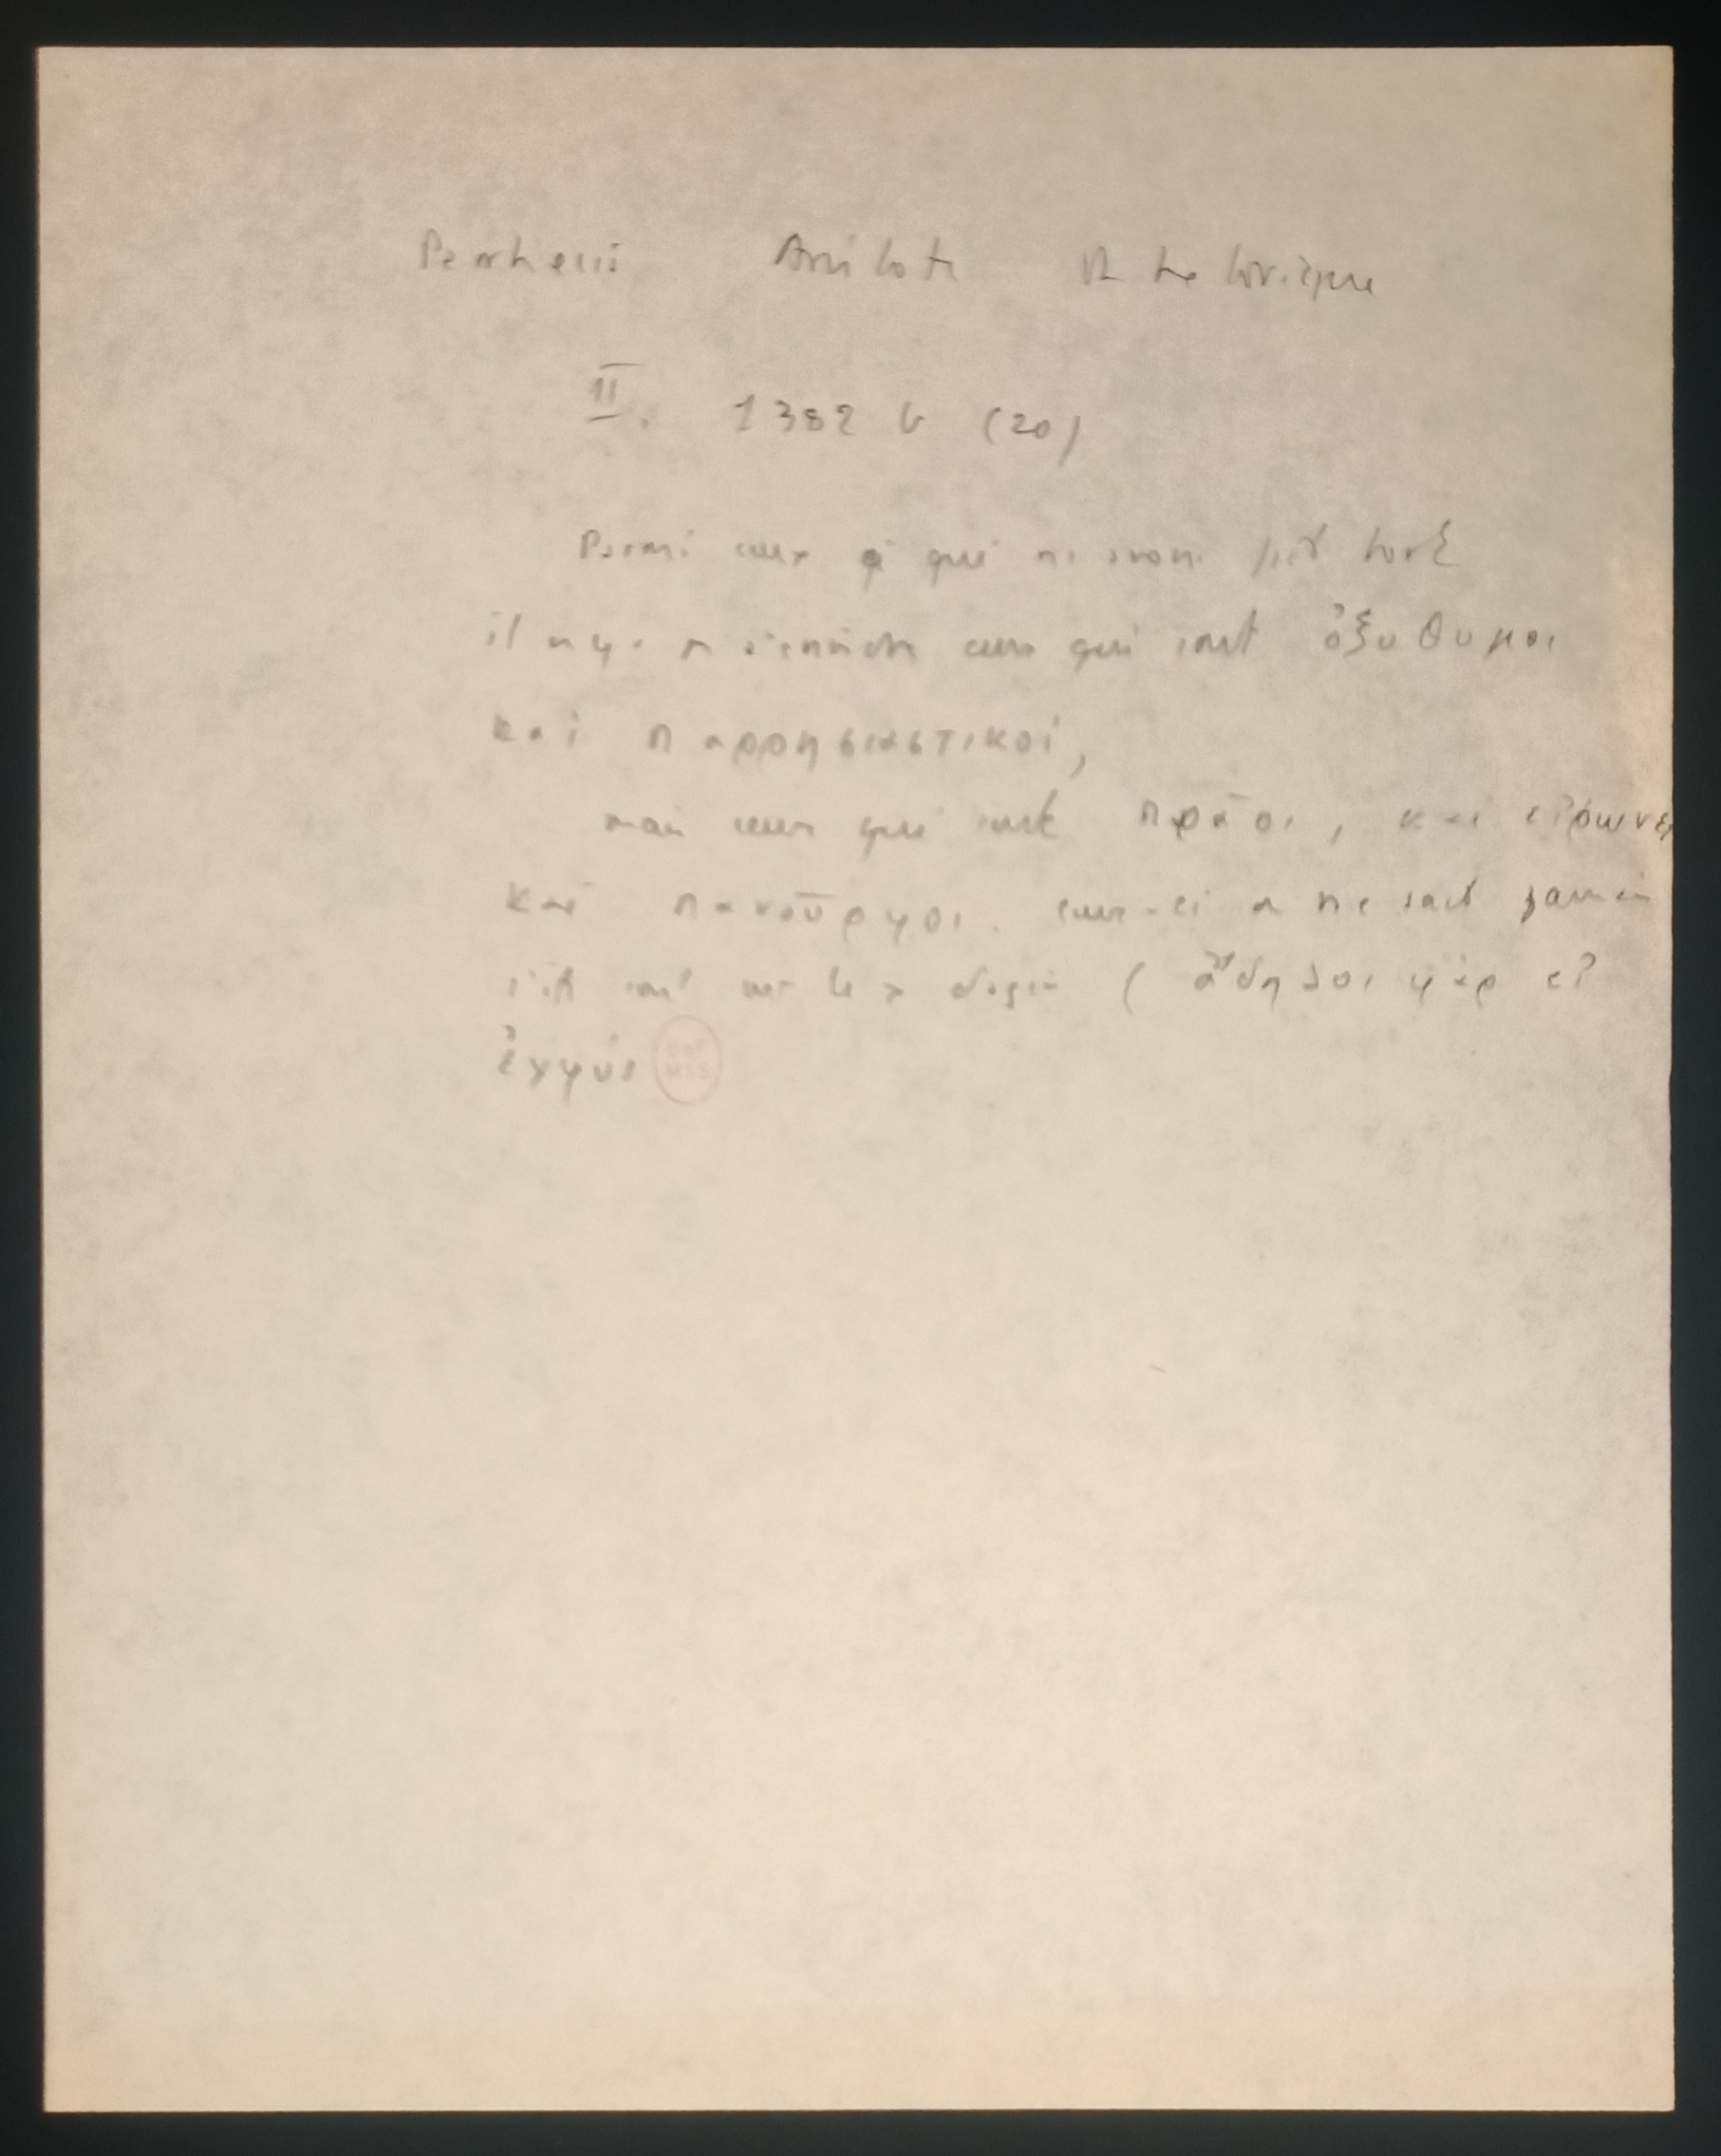 Parrhesia Aristote Rhétorique
II. 1382 b (20)
Parmi ceux qui qui nous ont fait tort
il n'y a pas à craindre ceux qui sont ὀξύθυμοι
καὶ παρρησιαστικοί,
mais ceux qui sont πρᾶοι, καὶ εἴρωνες
καὶ πανοῦργοι. ceux-ci on ne sait jamais
s'ils sont (ἄδηλοι γὰρ εἰ
ἐγγύς
BnF
MSS